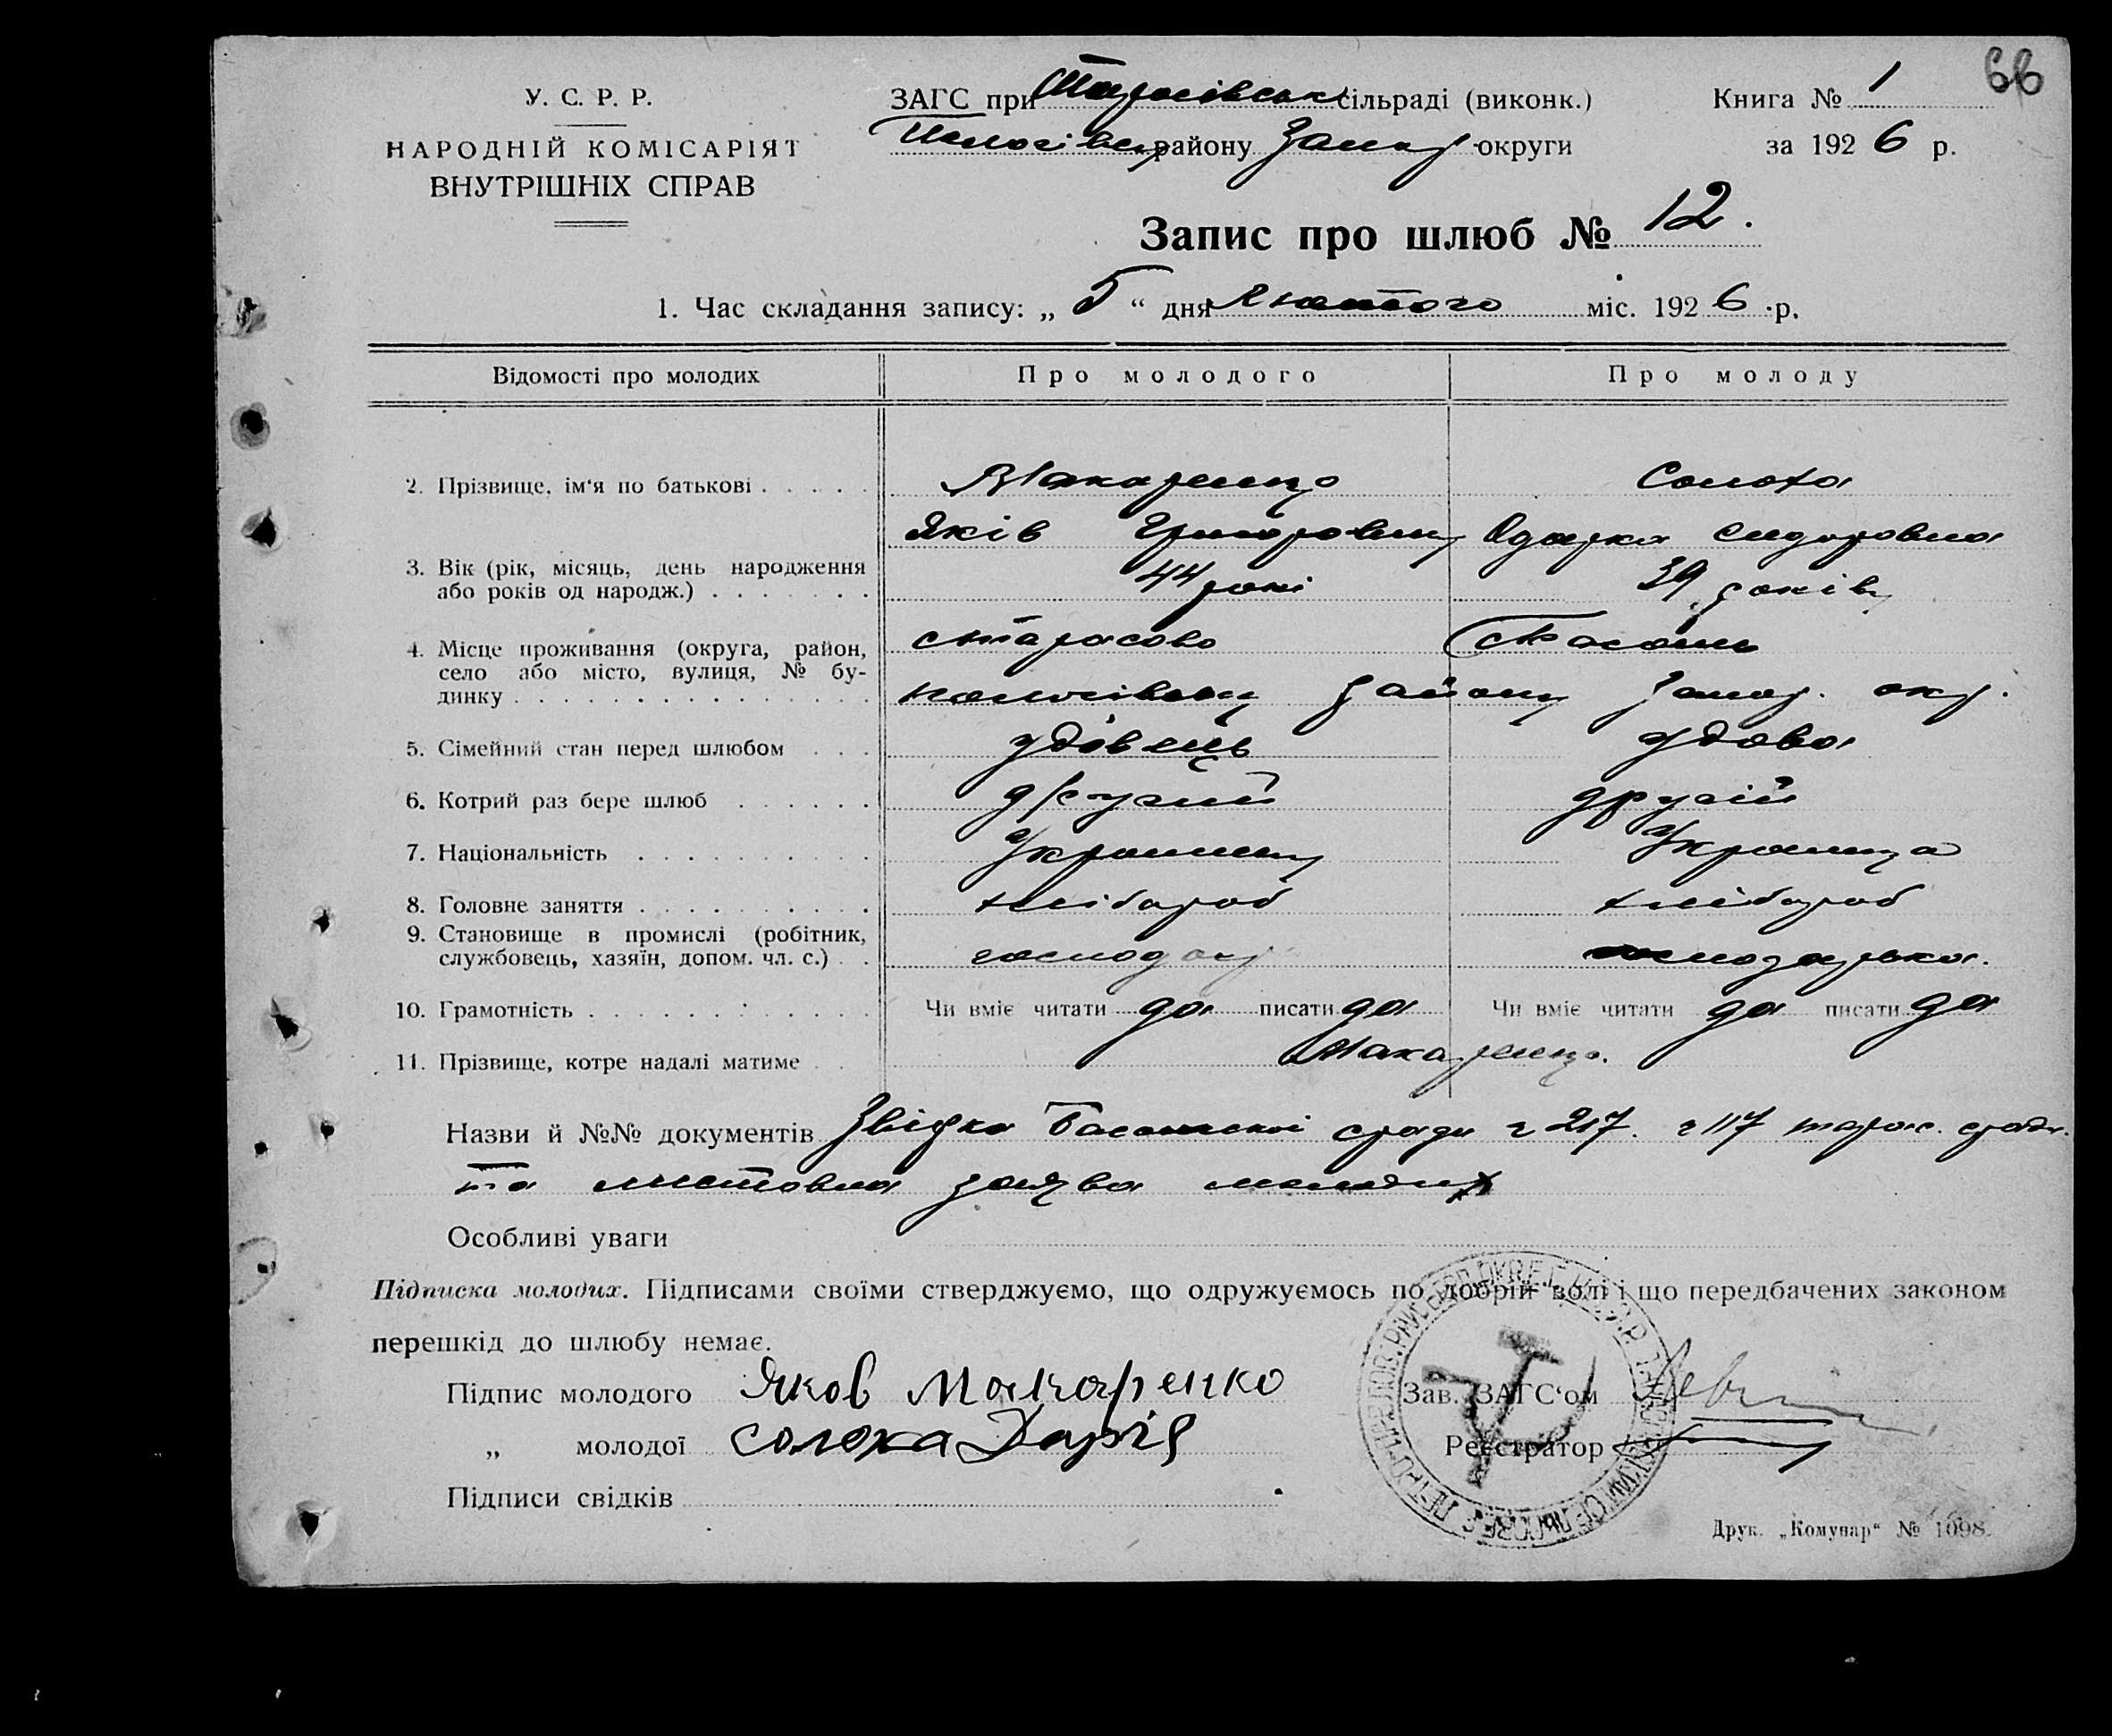 66
У. С. Р. Р.
НАРОДНІЙ КОМІСАРІЯТ
ВНУТРІШНІХ СПРАВ
ЗАГС при Тарасівськ сільраді (виконк.)
району Запор округи
Книга № 1
за 1926 р.
Запис про шлюб № 12.
1. Час складання запису: „ 5 “ дня Лютого міс. 1926 р.
Відомості про молодих Про молодого Про молоду
2. Прізвище, ім'я по батькові Макаренко Солоха
Яків Григорович Одарка Сидоровна
3. Вік (рік, місяць, день народження
або років од народж.) 44 роки 39 років
4. Місце проживання (округа, район,
село або місто, вулиця, № бу-
динку
району Запор. окр.
5. Сімейний стан перед шлюбом удовець удова
6. Котрий раз бере шлюб другий другій
7. Національність Українець Українка
8. Головне заняття хлібороб хлібороб
9. Становище в промислі (робітник,
службовець, хазяїн, допом. чл. с.) господар господарька.
10. Грамотність Чи вміє читати да писати да Чи вміє читати да писати да
11. Прізвище, котре надалі матиме Макаренко.
Назви й №№ документів Звідка Басанської сради 217. 117 тарас. сради.
та листовна заява молодих
Особливі уваги
Підписка молодих. Підписами своїми стверджуємо, що одружуємось по добрій волі і що передбачених законом
перешкід до шлюбу немає.
Підпис молодого Яков Макаренко
„ молодої Солоха Дарія
Підписи свідків
Зав. ЗАГС'ом
Реєстратор
Друк. „Комунар“ № 1098.